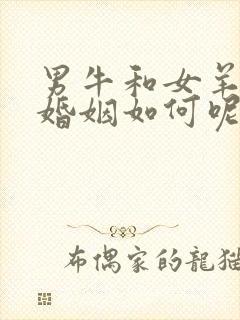 男牛和女羊
婚姻如何呢
布偶家的龍猫